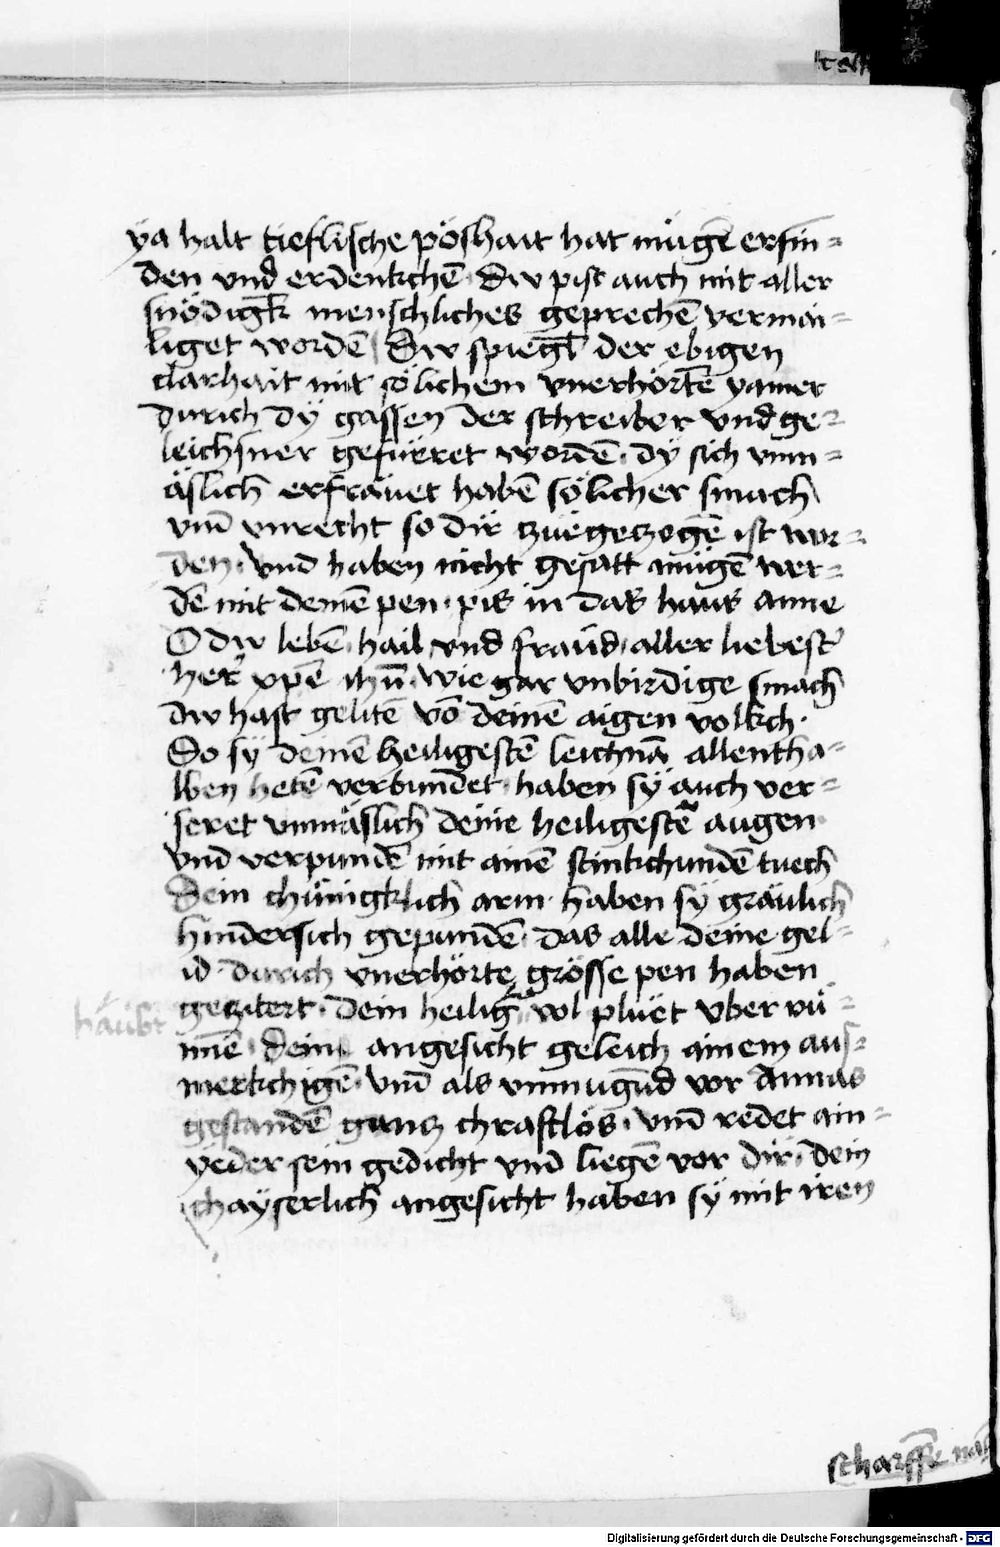 ÿa halt tieflische pöshait hat mügē erfin-
den vnd erdenkchē. Dw pist auch mit aller
snödigk̄ menschliches geprechē vermai-
liget wordē Dw spiegl̄ der ebigen
clarhait mit sölichem vnerhörtē yamer
durich dÿ gassen der schreiber vnd ge-
leichsner gefüeret wordē. dÿ sich vnm-
äslich erfräuet habē sölicher smach
vnd̄ vnrecht so dir zuegezogē ist wor-
den. vnd haben nicht gesatt mügē wer-
dē mit deinē pen. pis in das haus anne
O dw lebē. hail. vnd fraüd. aller liebest'
her' xp̄e ihū. wie gar vnbirdige smach
dw hast gelitē vō deinē aigen volkch.
Do sÿ deinē heiligestē leichnā allentha-
lben hetē verbundet. haben sÿ auch ver-
seret vnmäslich deine heiligestē augen
vnd verpundē mit ainē stinkchundē tuech
Dein chünigklich arm. haben sÿ gräulich
hindersich gepundē. das alle deine gel-
id durich vnerhörte grösse pen haben
gezitert. dein heiliḡ wl pluet vber rü-
häubt
inē. dein angesicht geleich ainem aus-
merkchigē. vnd̄ als vnmugūd vor Annas
gestandē ganz chraftlös. vnd̄ redet ain-
yeder sein gedicht vnd liegē vor dir. dein
chaÿserlich angesicht haben sÿ mit iren
scharffe
Digitalisierung gefördert durch die Deutsche Forschungsgemeinschaft - DFG